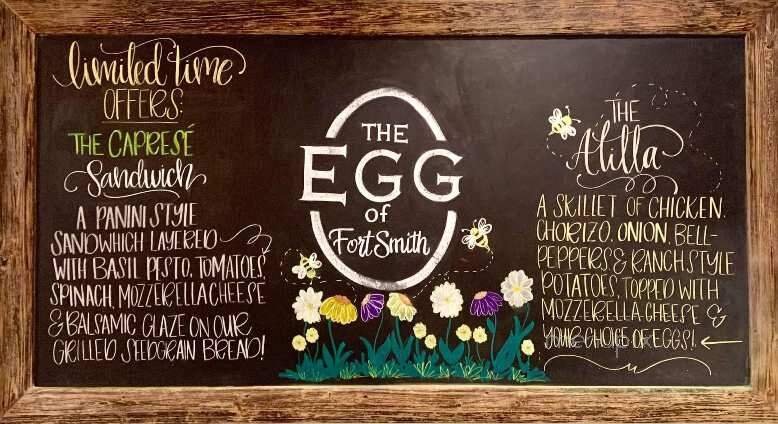 limited time
OFFERS:
THE CAPRESÉ
Sandwich
A PANINI STYLE
SANDWHICH LAYERED
WITH BASIL PESTO, TOMATOES,
SPINACH, MOZZERELLA CHEESE
& BALSAMIC GLAZE ON OUR
GRILLED SEEDGRAIN BREAD!
THE
EGG
OF
Fort Smith
THE
Alilla
A SKILLET OF CHICKEN,
CHORIZO, ONION, BELL-
PEPPERS & RANCH STYLE
POTATOES, TOPPED WITH
MOZZERELLA CHEESE &
YOUR CHOICE OF EGGS!